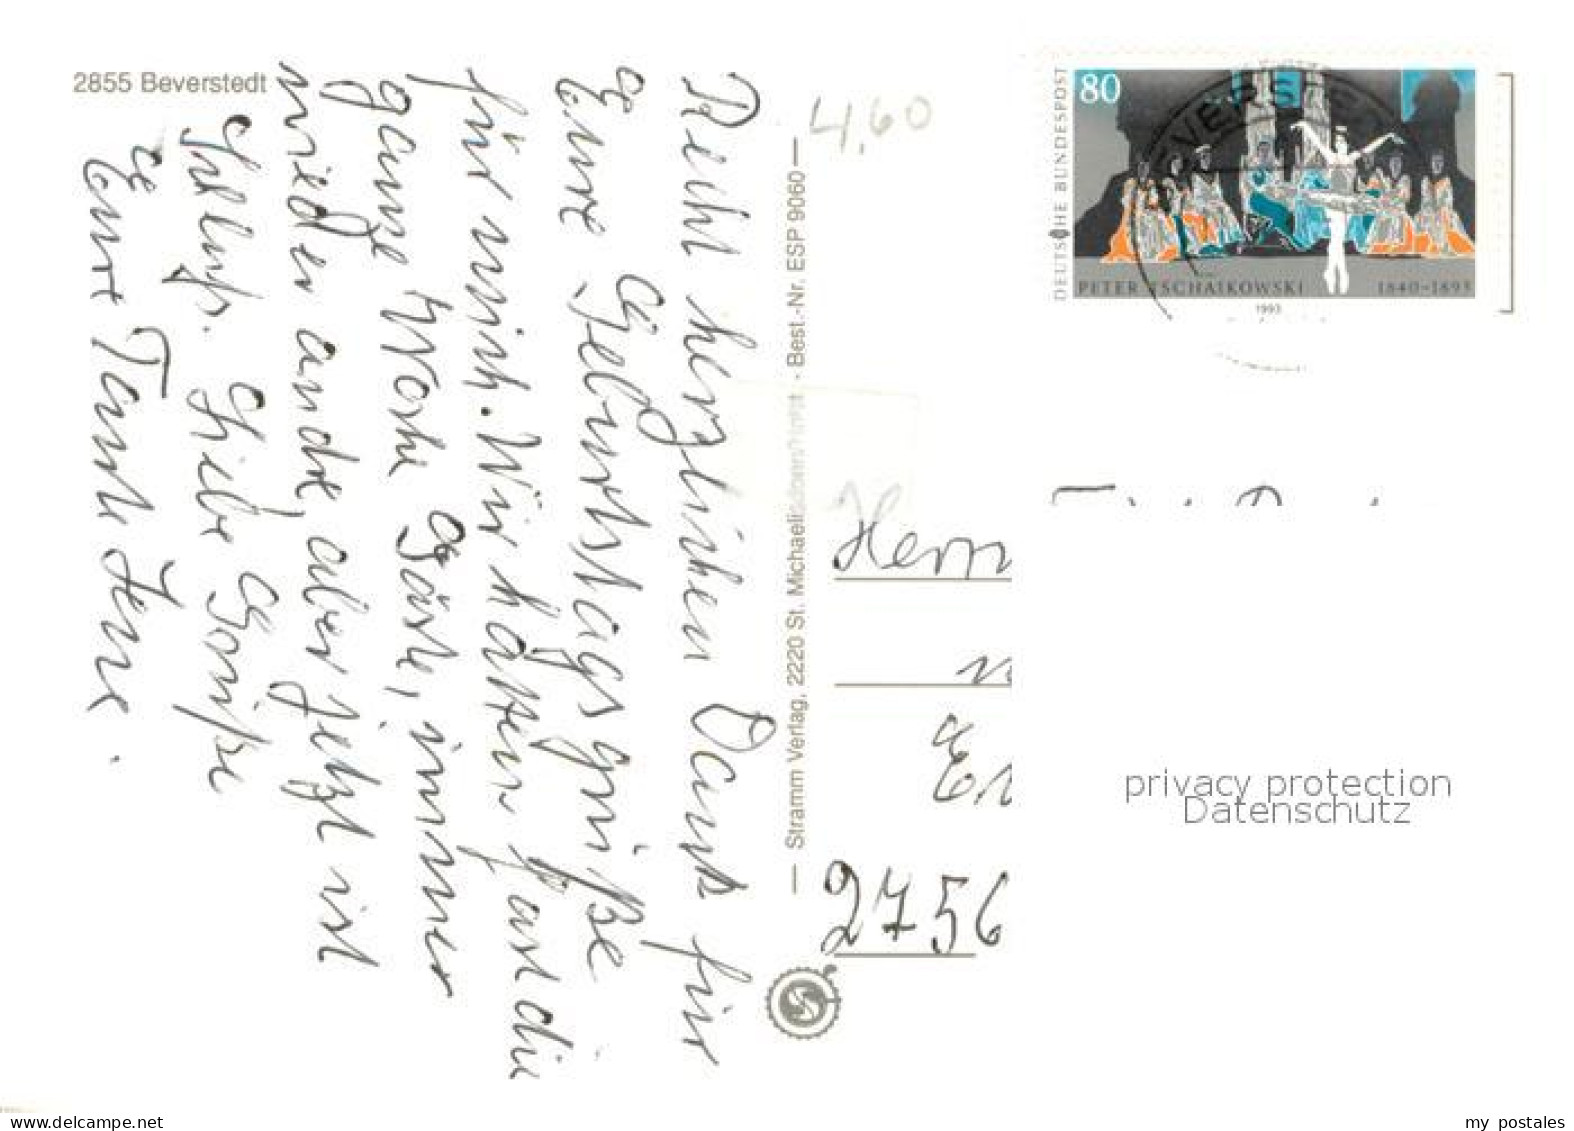 2855 Beverstedt
Recht herzlichen Dank für
Eure Geburtstagsgrüße
für mich. Wir hatten fast die
ganze Woche Gäste, immer
wieder andre, aber jetzt ist
Schluß. Liebe Grüße
Eure Tante Irene.
Stramm Verlag, 2220 St. Michaelisdonn - Best.-Nr. ESP 9060
4,60
80
DEUTSCHE BUNDESPOST
PETER TSCHAIKOWSKI 1840-1893
1993
Herrn
2756
privacy protection
Datenschutz
delcampe.net
my_postales